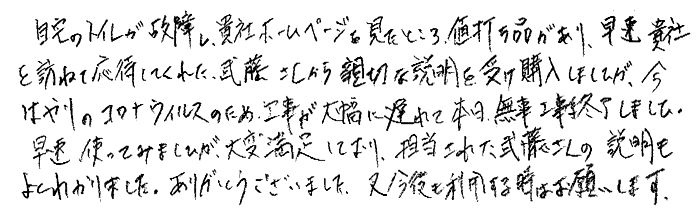 自宅のトイレが故障し、貴社ホームページを見たところ、値打ち品があり、早速貴社
を訪ねて応待してくれた、武藤さんから親切な説明を受け購入しましたが、今
はやりのコロナウイルスのため、工事が大幅に遅れて本日、無事工事終了しました。
早速使ってみましたが、大変満足しており、担当された武藤さんの説明も
よくわかりました。ありがとうございました、又今後も利用する時はお願いします。